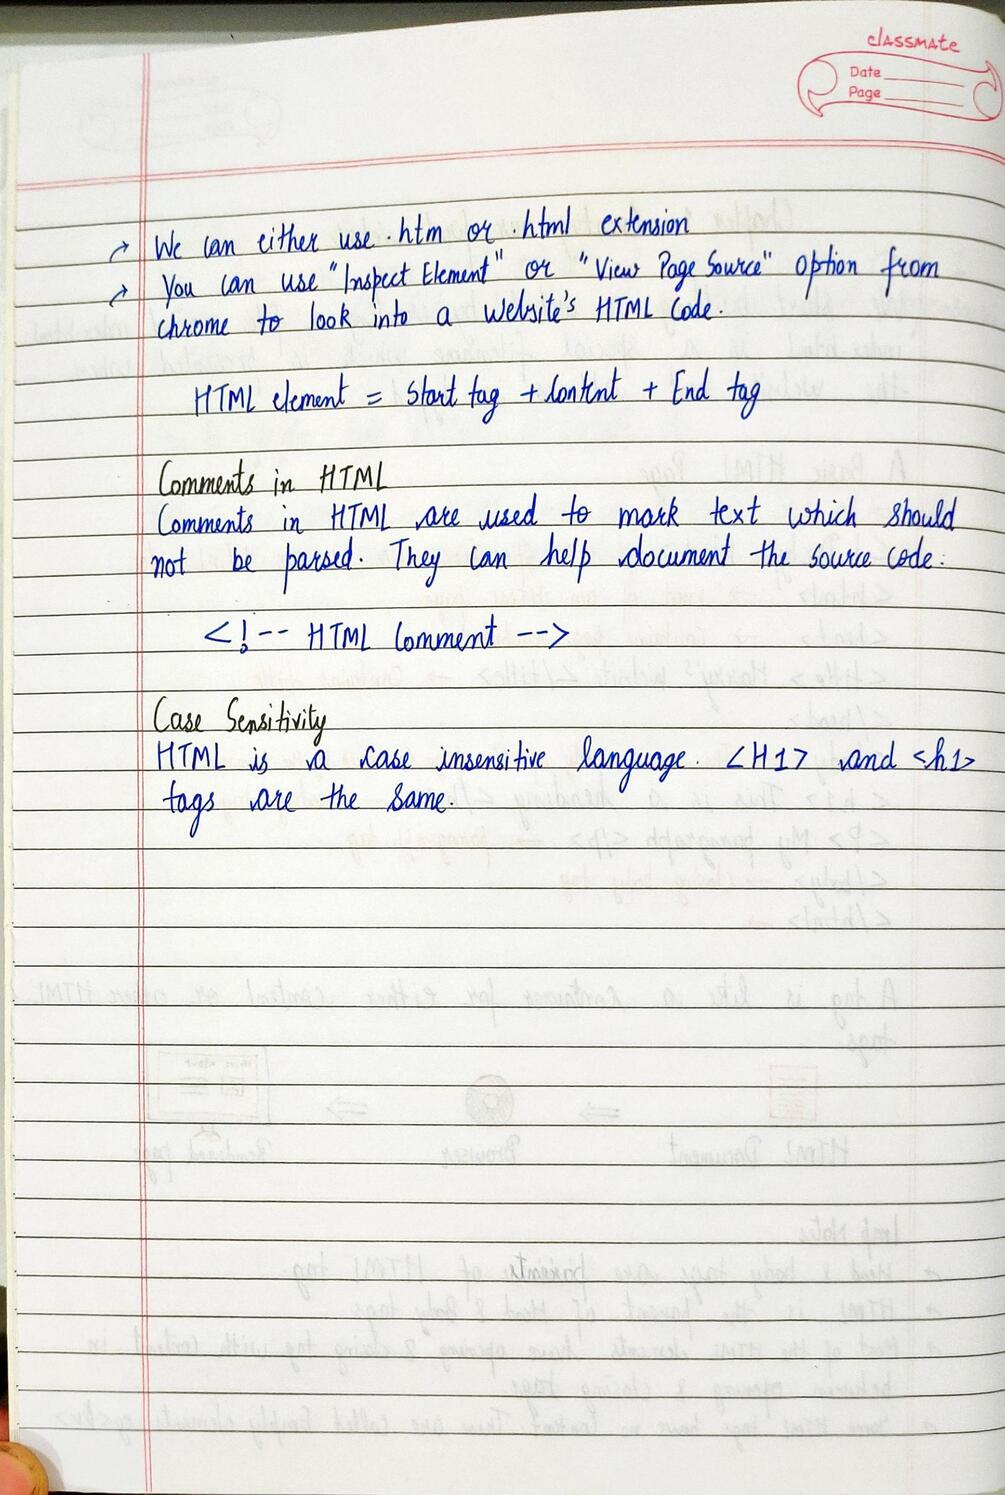 classmate
Date
Page
→ We can either use .htm or .html extension
→ You can use "Inspect Element" or "View Page Source" option from
chrome to look into a website's HTML Code.
HTML element = Start tag + Content + End tag
Comments in HTML
Comments in HTML are used to mark text which should
not be parsed. They can help document the source code.
<!-- HTML Comment -->
Case Sensitivity
HTML is a case insensitive language. <H1> and <h1>
tags are the same.